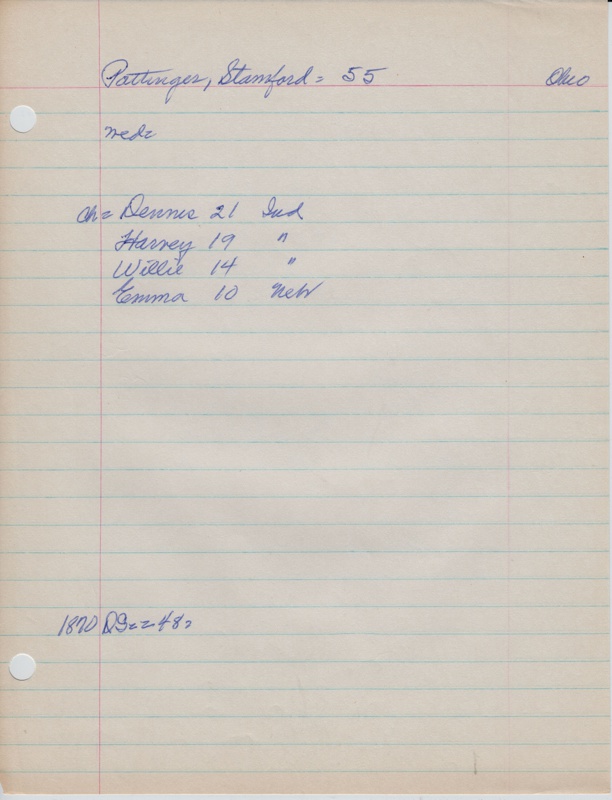 Pattinger, Stamford = 55 Ohio
wed=
ch = Dennis 21 Ind
Harvey 19 "
Willie 14 "
Emma 10 Nebr
1870 DS== 48=